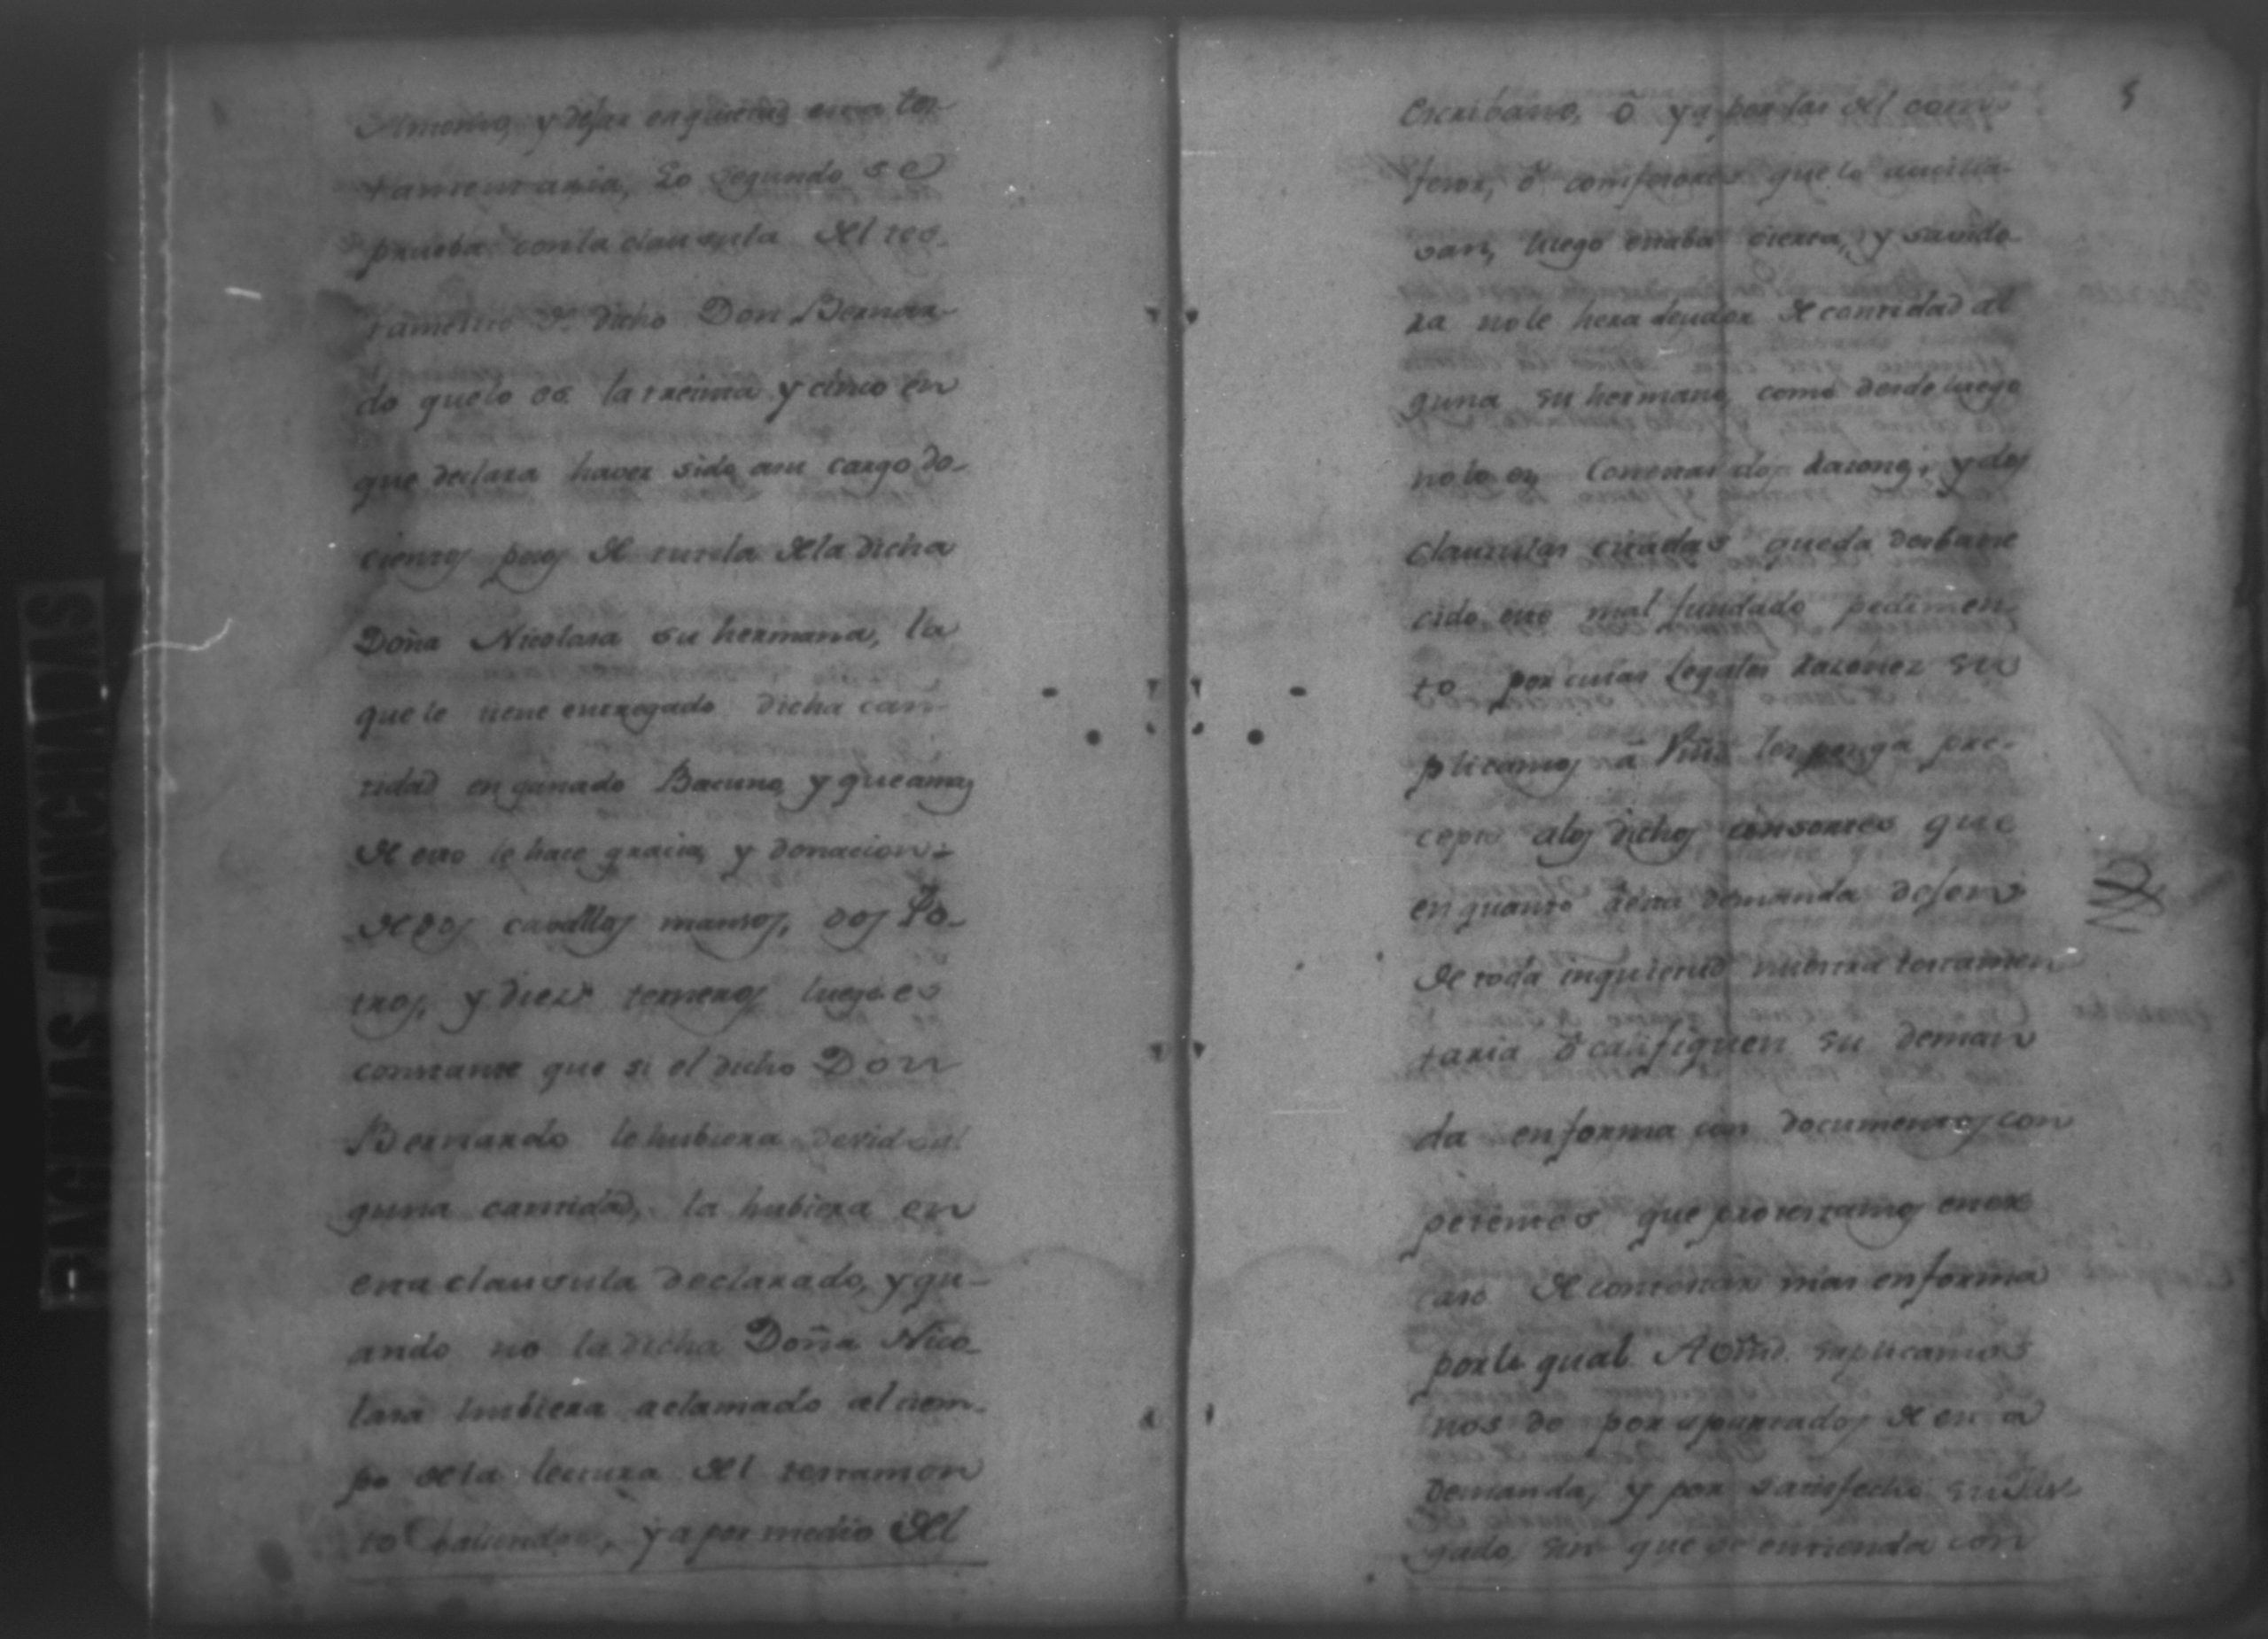 y dejar en quietud esta tes-
tamentaria, Lo segundo se
prueba con la clausula del tes-
tamento de dicho Don Bernar-
do que lo es la treinta y cinco en
que declara haver sido a su cargo do-
cientos pesos de tutela de la dicha
Doña Nicolasa su hermana, la
que le tiene entregado dicha can-
tidad en ganado Bacuno, y que a mas
de esto le hace gracia, y donacion
de dos cavallos mansos, dos Po-
tros, y diez terneros luego es
constante que si el dicho Don
Bernardo le hubiera devido al
guna cantidad, la hubiera en
esta clausula declarado, y qu-
ando no la dicha Doña Nico-
lasa hubiera aclamado al tiem-
po de la lectura del testamen
to ya por medio del
5
Escribano, ô ya por los del con-
fesor, ô confesores que lo auxilia-
van, luego estaba cierta, y savido-
ra no le hera deudor de cantidad al
guna su hermano, como desde luego
no lo es, Con estas dos razones, y dos
clausulas citadas queda desbane
cido este mal fundado pedimen-
to por cuias legales razones su
plicamos â Vmd. les ponga pre-
cepto a los dichos consortes que
en quanto â esta demanda dejen
de toda inquietud nuestra testamen
taria ô califiquen su deman
da en forma con documentos con
petentes que protextamos en ese
caso de contextar mas en forma
por lo qual A Vmd. suplicamos
nos de por apartados de esta
demanda, y por satisfecho su Jus-
gado, sin que se entienda con
PAGINAS MANCHADAS